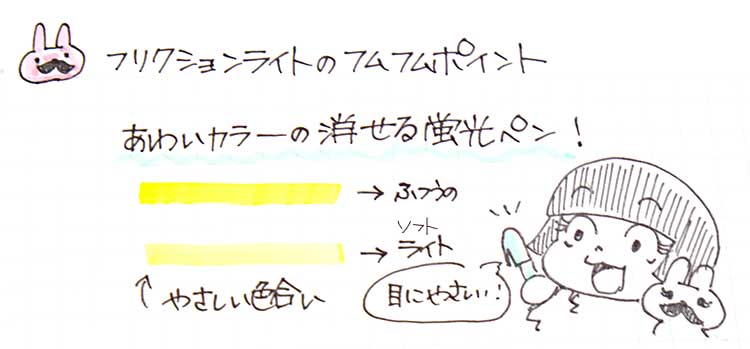 フリクションライトのフムフムポイント
あわいカラーの消せる蛍光ペン!
→ ふつうの
ソフト
→ ライト
↑ やさしい色合い
目にやさしい!